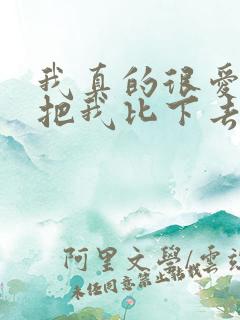 我真的很爱
把我比下去
阿里文学/云
未经同意禁止转载